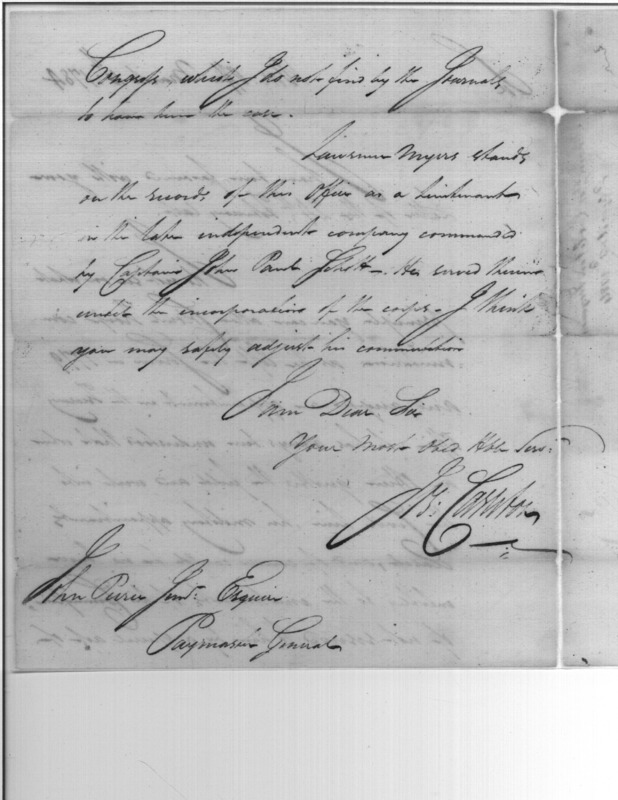 Congress which I do not find by the Journals
to have been the case.
Lawrence Myers stands
on the records of this Office as a Lieutenant
in the late independent company commanded
by Captain John Paul Schott. He served therein
until the incorporation of the corps. I think
you may safely adjust his commutation
I am Dear Sir
Your most Obed Hble Serv:
Js: Carleton
John Pierce Junr: Esquire
Paymaster General